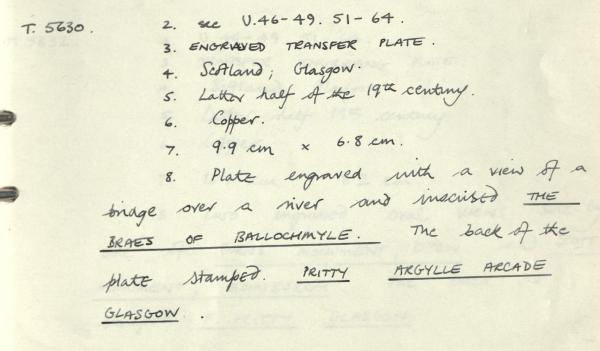 T. 5630. 2. see U.46-49. 51-64.
3. ENGRAVED TRANSFER PLATE.
4. Scotland; Glasgow.
5. Latter half of the 19th century.
6. Copper.
7. 9.9 cm x 6.8 cm.
8. Plate engraved with a view of a
bridge over a river and inscribed THE
BRAES OF BALLOCHMYLE. The back of the
plate stamped. PRITTY ARGYLLE ARCADE
GLASGOW.